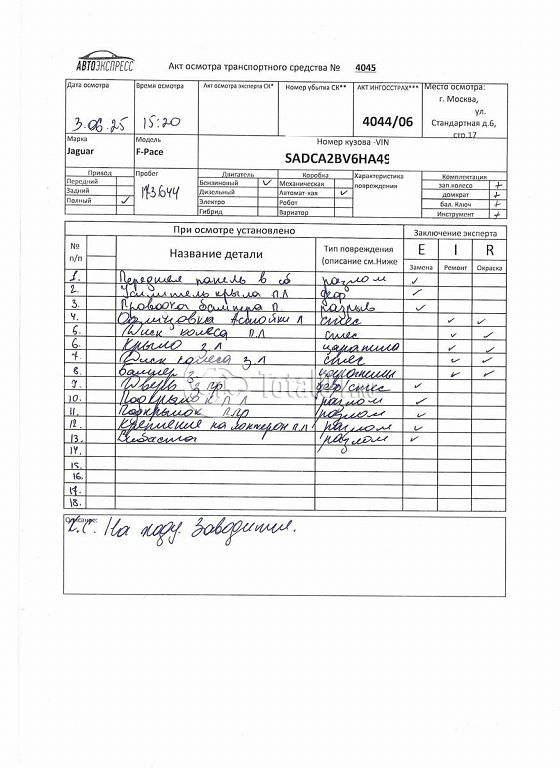 АВТОЭКСПРЕСС
Акт осмотра транспортного средства № 4045
Дата осмотра
Время осмотра
Акт осмотра эксперта СК*
Номер убытка СК**
АКТ ИНГОССТРАХ***
Место осмотра:
3.06.25
15:20
4044/06
г. Москва,
ул.
Стандартная д.6,
стр.17
Марка
Jaguar
Модель
F-Pace
Номер кузова -VIN
SADCA2BV6HA49
Привод
Передний
Задний
Полный ✓
Пробег
173644
Двигатель
Бензиновый ✓
Дизельный
Электро
Гибрид
Коробка
Механическая
Автомат-кая ✓
Робот
Вариатор
Характеристика
повреждения
Комплектация
зап.колесо +
домкрат +
бал. Ключ +
Инструмент +
При осмотре установлено
Заключение эксперта
№
п/п
Название детали
Тип повреждения
(описание см.Ниже
E I R
Замена Ремонт Окраска
1. Передняя панель в сб разлом ✓
2. Усилитель крыла П.Л деф ✓
3. Проводка бампера П разрыв ✓
4. л ✓ ✓
5. Диск колеса п.л ✓ ✓
6. Крыло з.л царапина ✓ ✓
7. Диск колеса з.л ✓ ✓
8. Бампер з. царапины ✓ ✓
9. Дверь з пр ✓
10. Подкрылок п л разлом ✓
11. Подкрылок п.пр разлом ✓
12. Крепление на п л разлом ✓
13. разлом ✓
14.
15.
16.
17.
18.
Total
Описание:
Т.С. На ходу. Заводится.